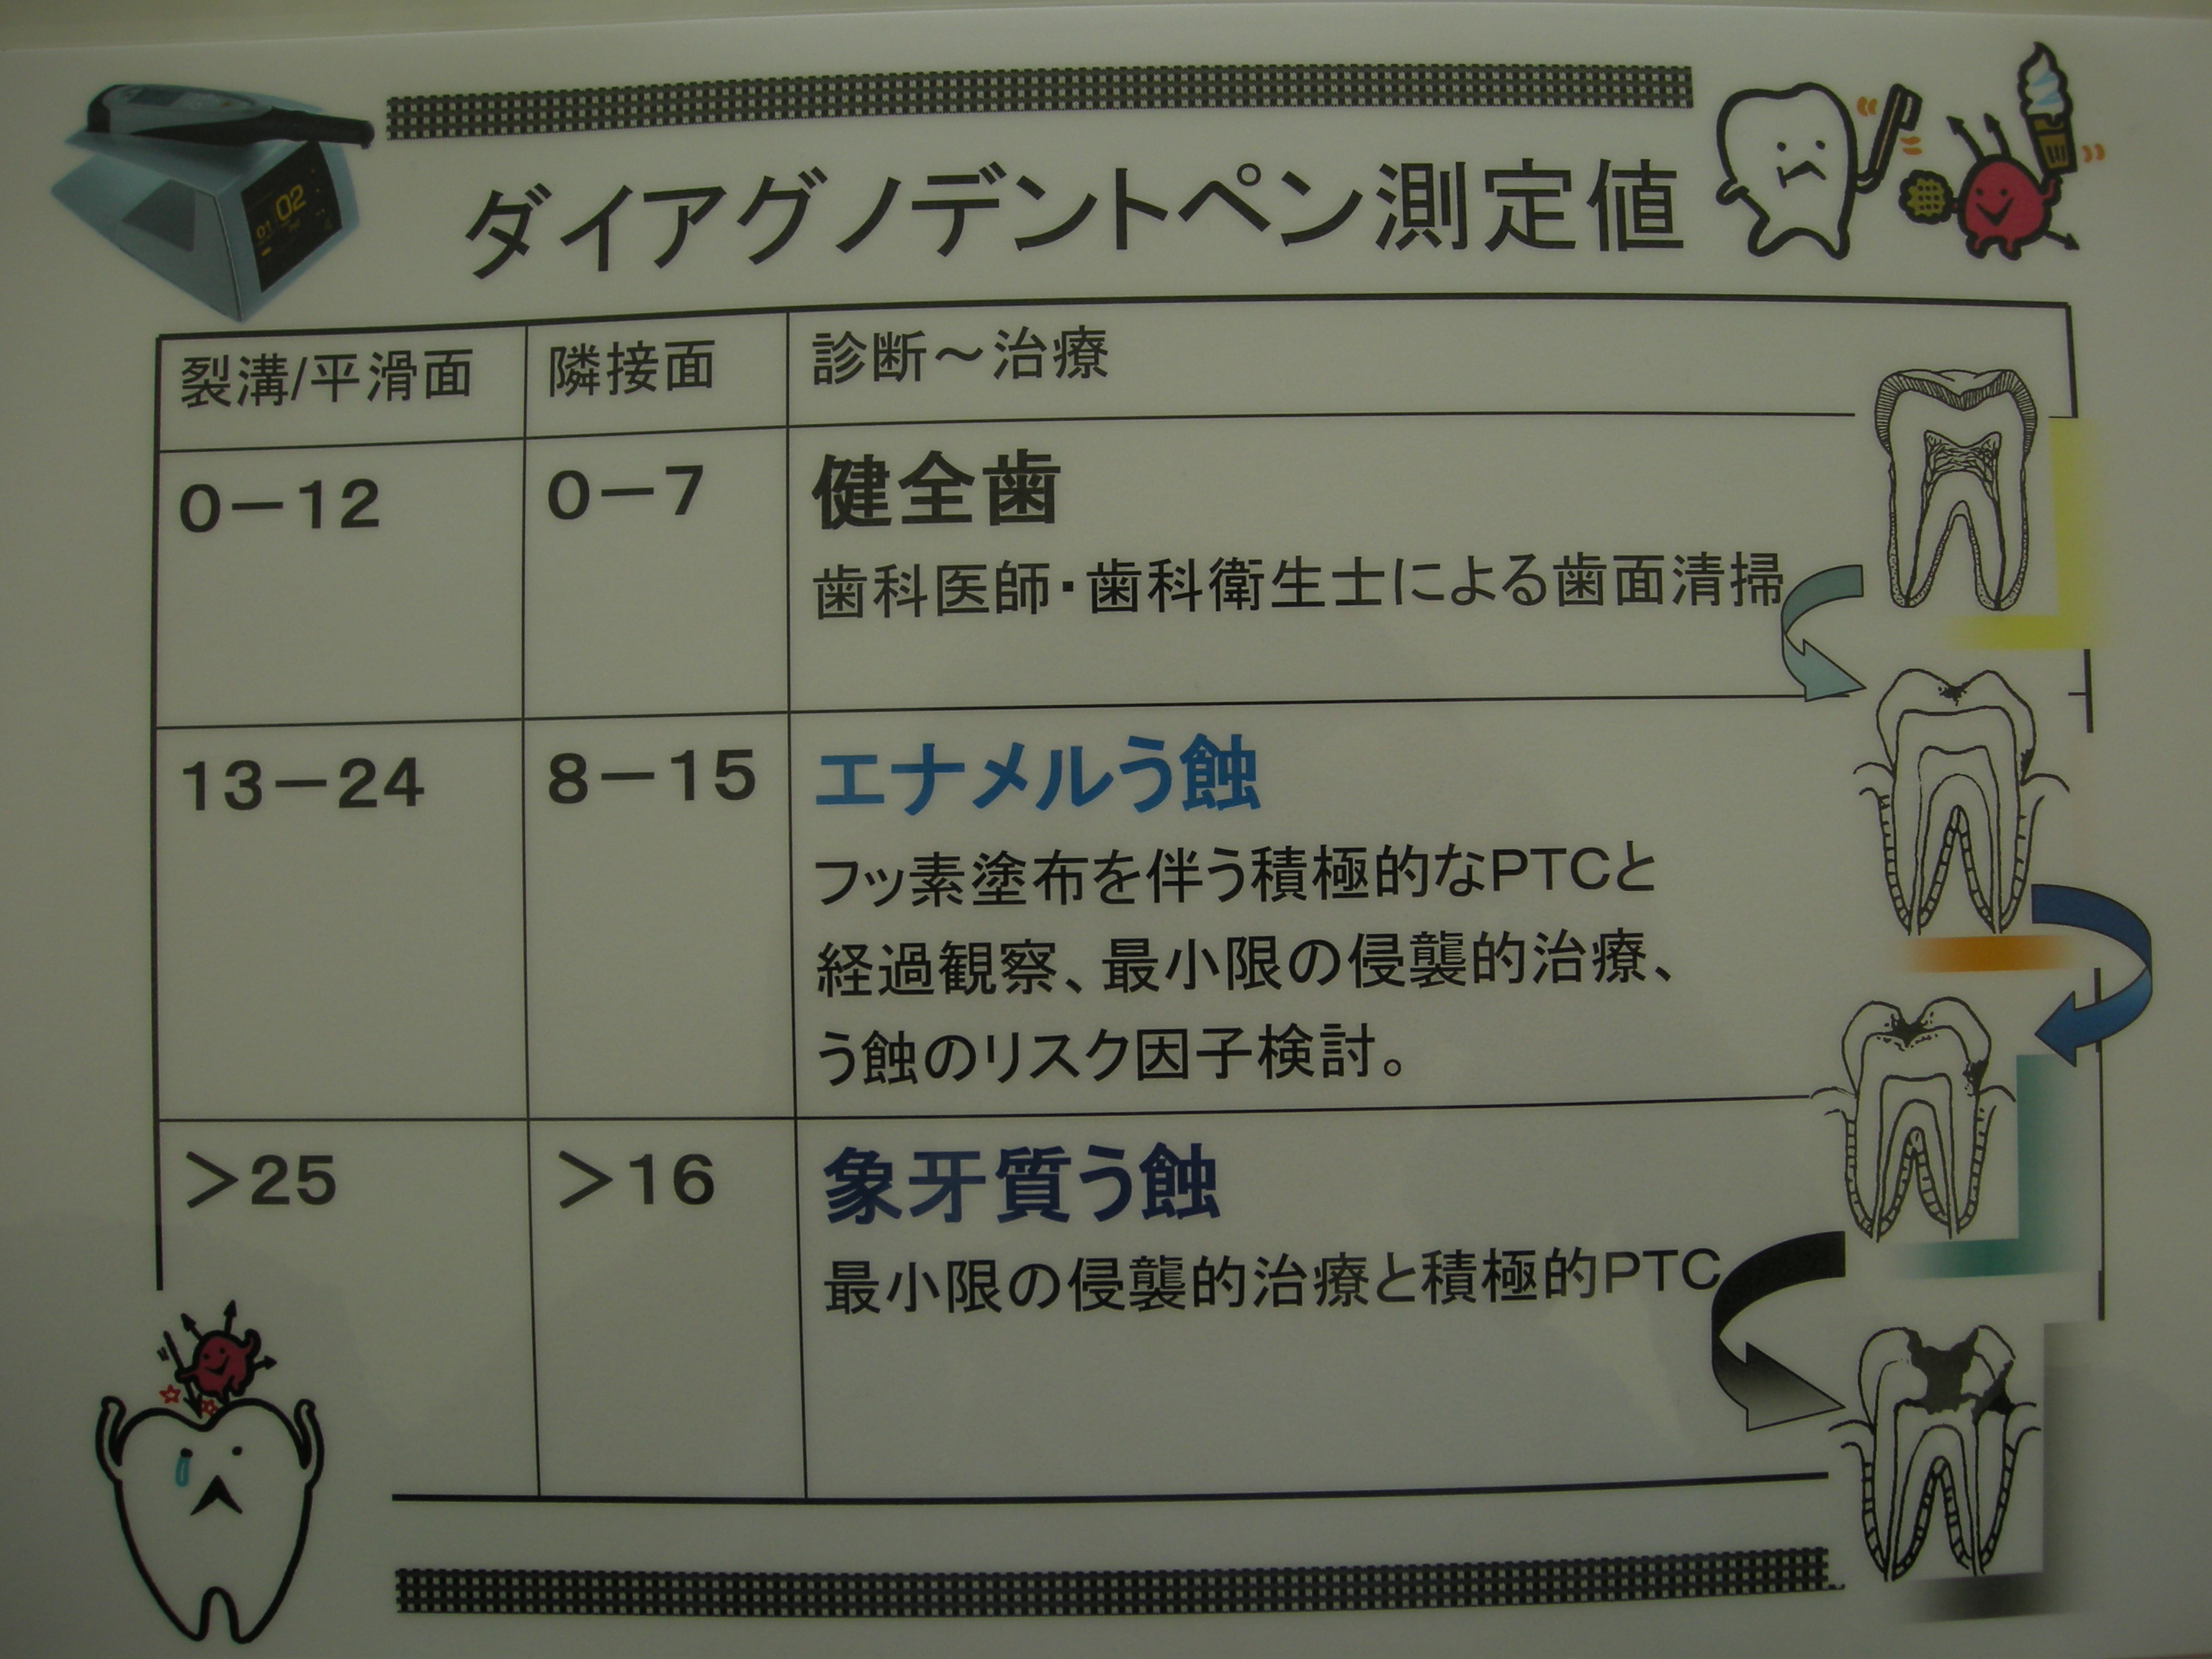 01 02
ダイアグノデントペン測定値
裂溝/平滑面 隣接面 診断～治療
0－12 0－7 健全歯
歯科医師・歯科衛生士による歯面清掃
13－24 8－15 エナメルう蝕
フッ素塗布を伴う積極的なPTCと
経過観察、最小限の侵襲的治療、
う蝕のリスク因子検討。
＞25 ＞16 象牙質う蝕
最小限の侵襲的治療と積極的PTC